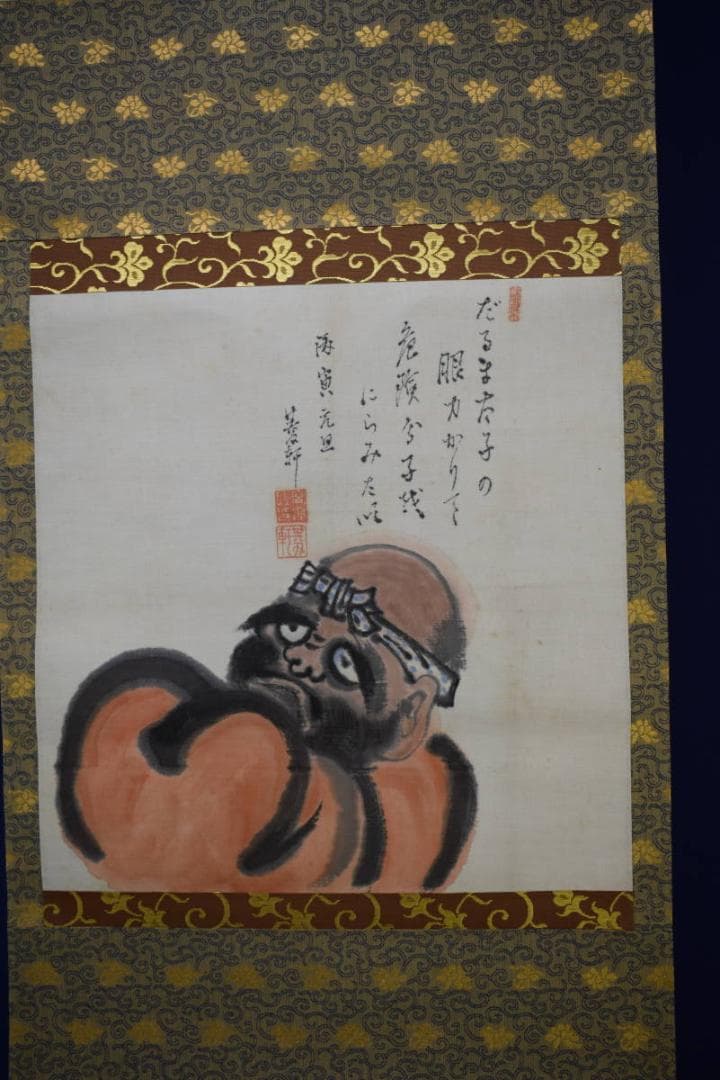 だるま太子の
眼力かりて
危険分子を
にらみたい
丙寅 元旦
軒